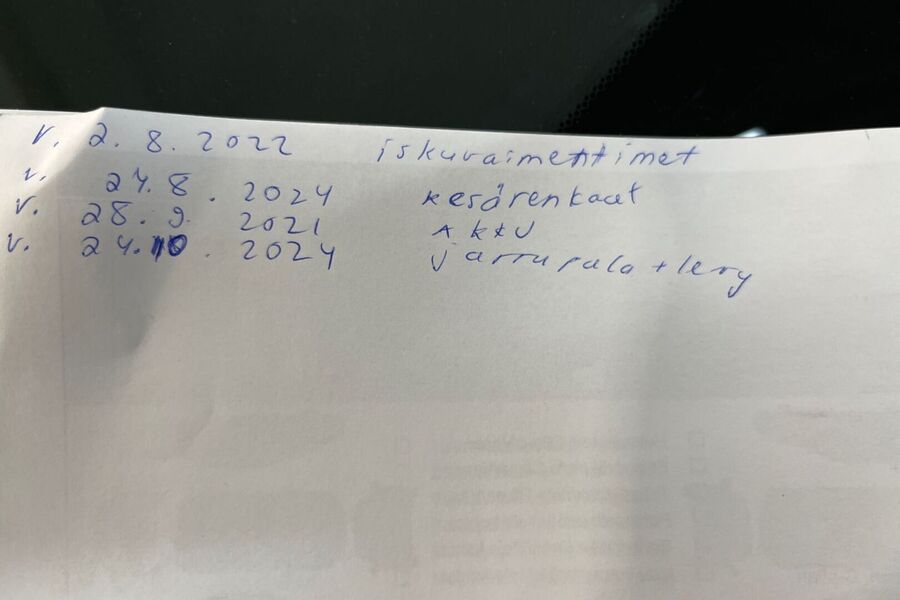 v. 2.8.2022 iskuvaimentimet
v. 24.8.2024 kesärenkaat
v. 28.9.2021 AKKU
v. 24.10.2024 jarrupala + levy